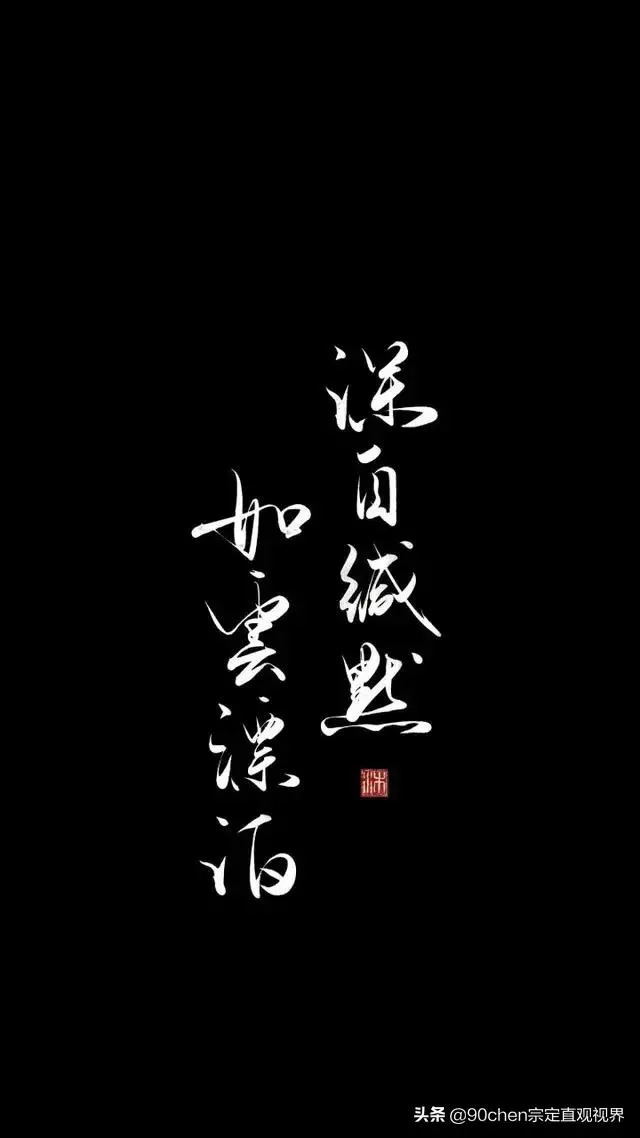 深自缄默
如雲漂泊
头条 @90chen宗定直观视界